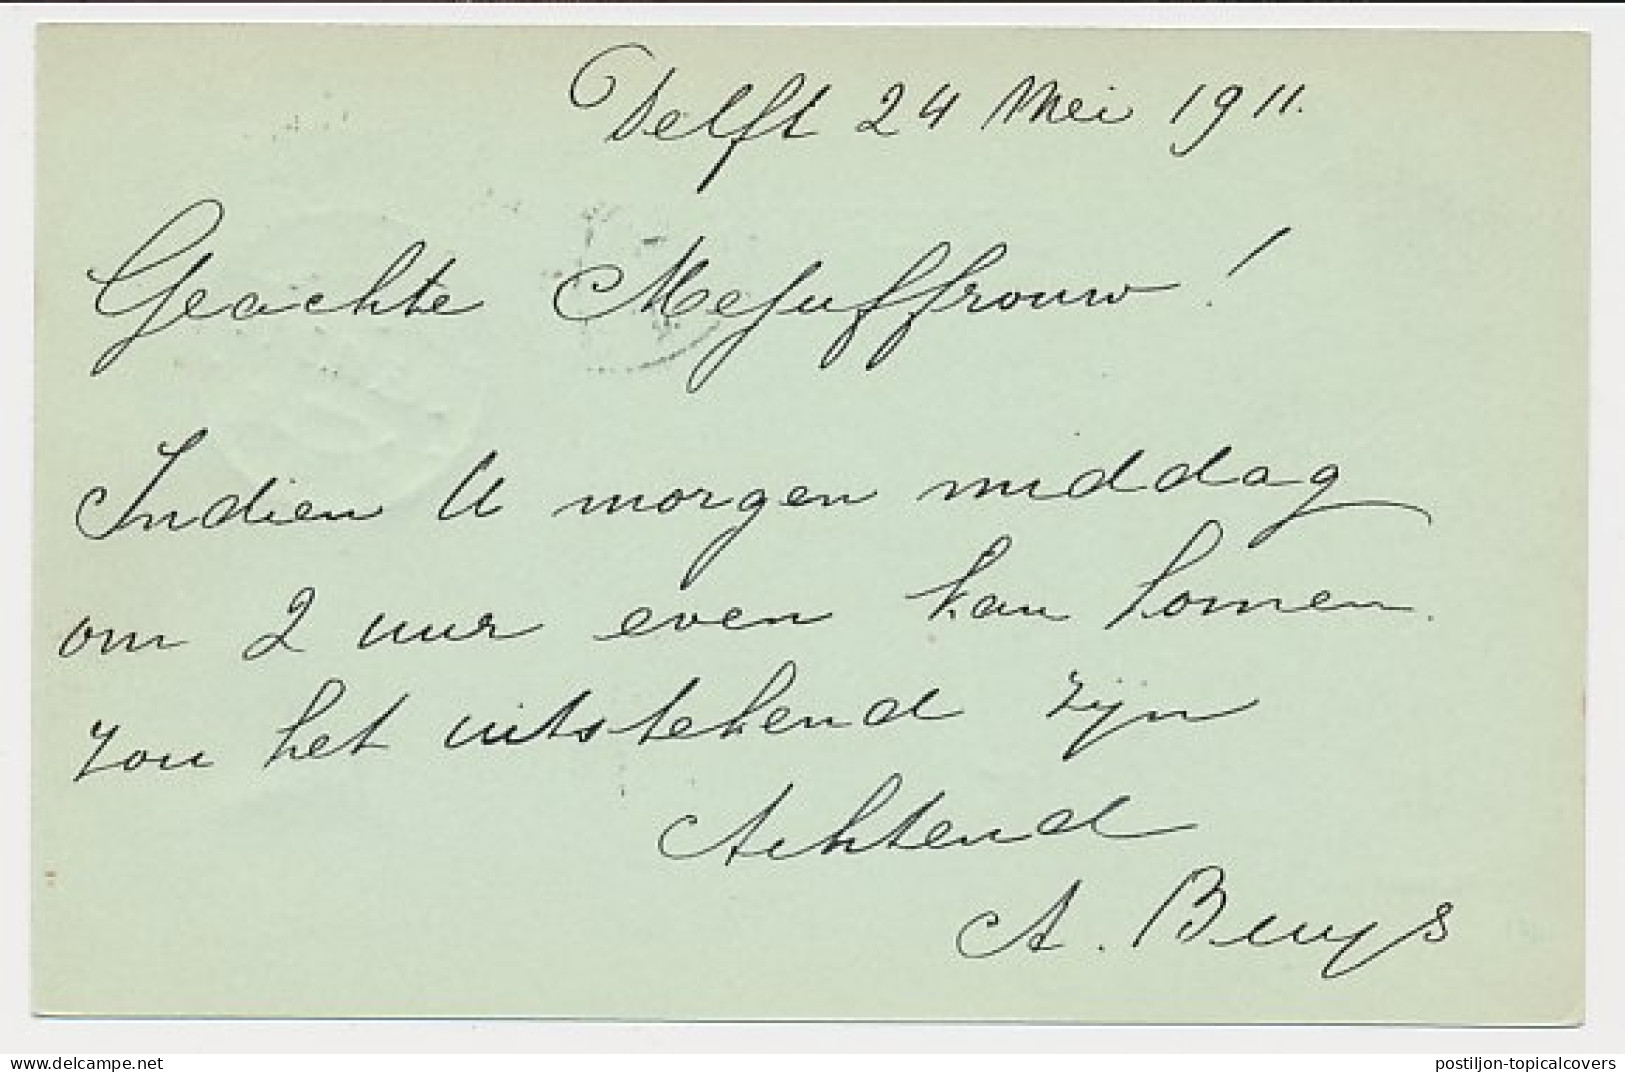 Delft 24 Mei 1911.
Geachte Mejuffrouw!
Indien U morgen middag
om 2 uur even kan komen.
zou het uitstekend zijn
Achtend
A. Buys
www.delcampe.net
postiljon-topicalcovers